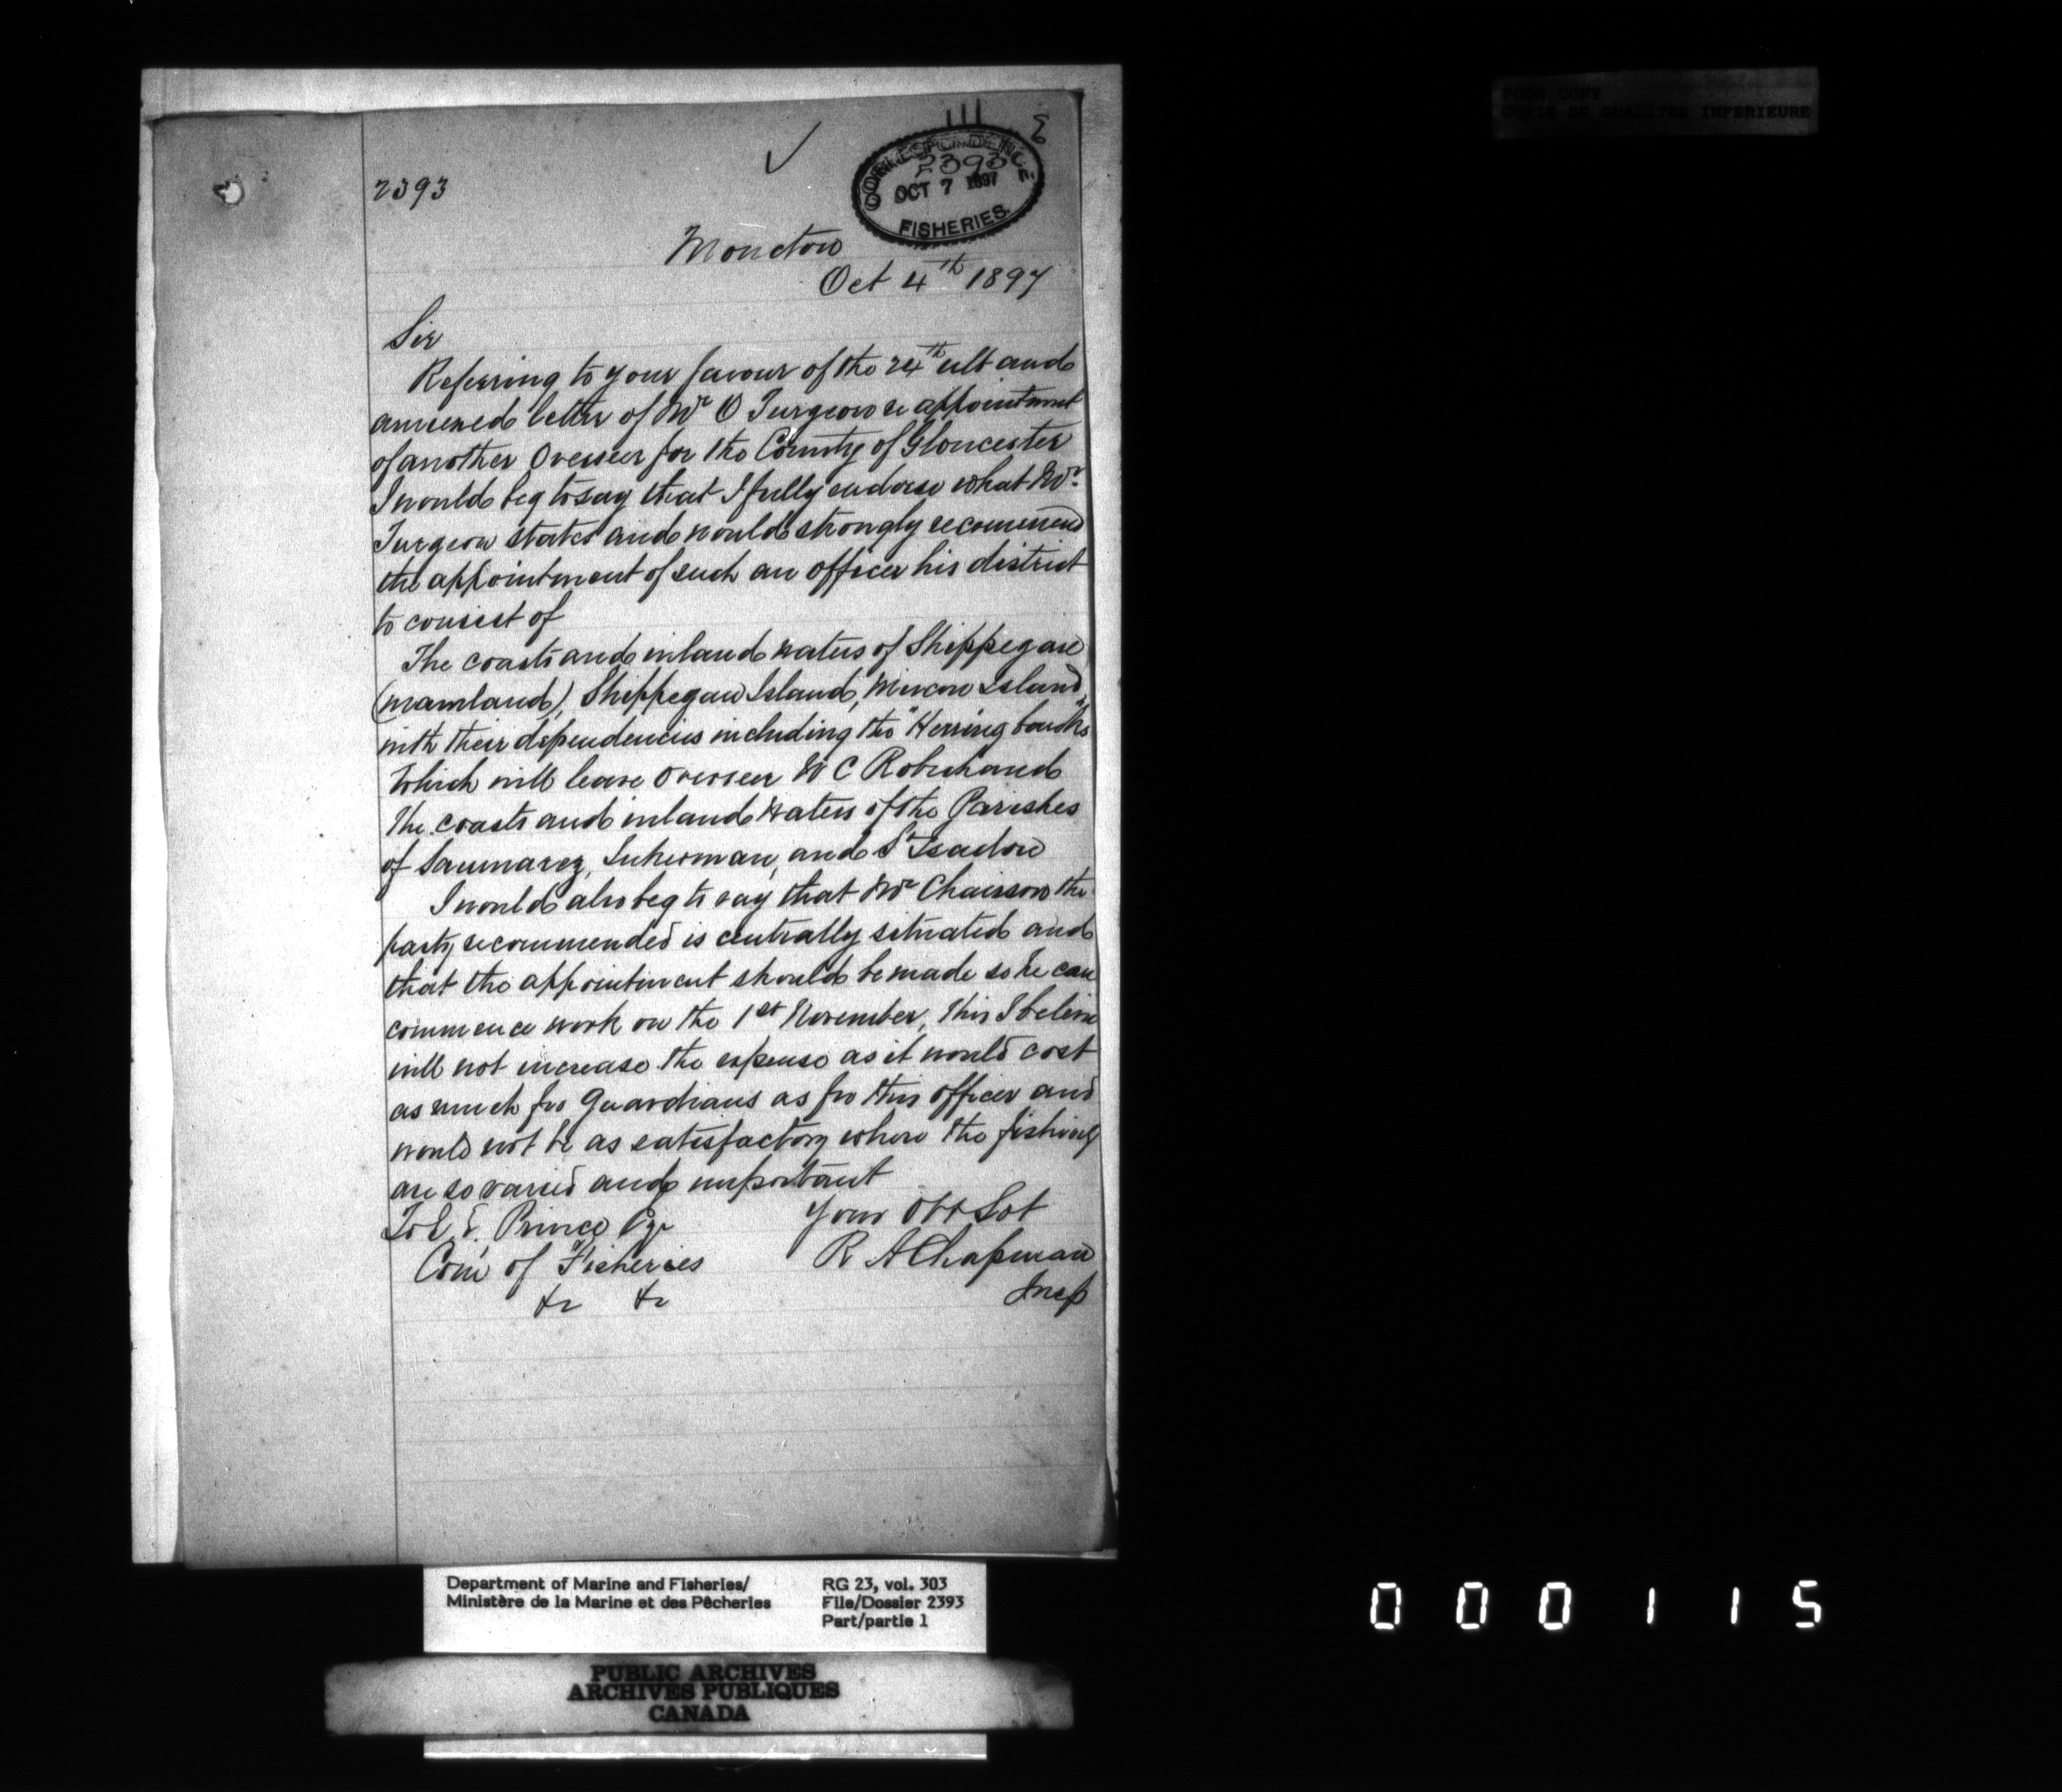 POOR COPY
COPIE DE QUALITEE INFERIEURE
2393
CORRESPONDENCE
2393
OCT 7 1897
FISHERIES.
Moncton
Oct 4th 1897
Sir
Referring to your favour of the 24th ult and
annexed letter of Mr O Turgeon re appointment
of another Overseer for the County of Gloucester
I would beg to say that I fully endorse what Mr.
Turgeon states and would strongly recommend
the appointment of such an officer his district
to consist of
The coasts and inland waters of Shippegan
(mainland), Shippegan Island, Miscou Island,
with their dependencies including the "Herring banks"
Which will leave Overseer W C Robichaud
The coasts and inland waters of the Parishes
of Saumarez, Inkerman, and St Isadore
I would also beg to say that Mr Chaisson the
party recommended is centrally situated and
that the appointment should be made so he can
commence work on the 1st November, this I believe
will not increase the expense as it would cost
as much for Guardians as for this officer and
would not be as satisfactory where the fishings
are so varied and important
To E. E. Prince Esqr
Your Obt Svt
Com of Fisheries
R A Chapman
&c &c
Insp
Department of Marine and Fisheries/
Ministère de la Marine et des Pêcheries
RG 23, vol. 303
File/Dossier 2393
Part/partie 1
PUBLIC ARCHIVES
ARCHIVES PUBLIQUES
CANADA
000115